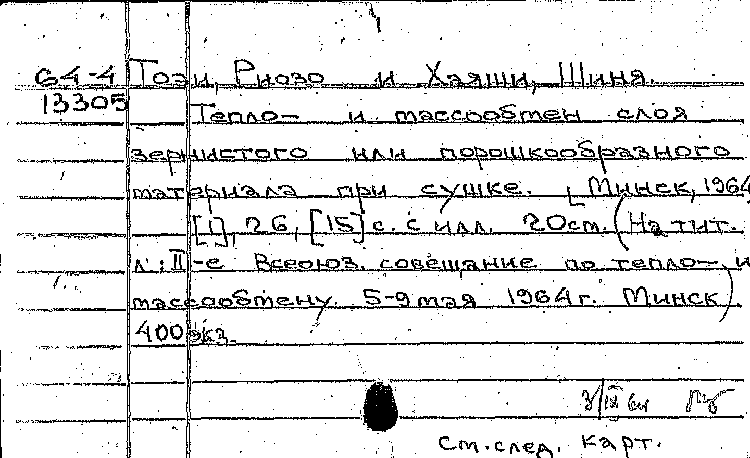 64-4 Тоэи, Риозо и Хаяши, Шиня.
13305 Тепло- и массообмен слоя
зернистого или порошкообразного
материала при сушке. [Минск, 1964
[1], 26, [15] с. с илл. 20см. (На тит.
л.: II-е Всесоюз. совещание по тепло- и
массообмену. 5-9 мая 1964 г. Минск)
400 экз.
3/IX 64
См. след. карт.